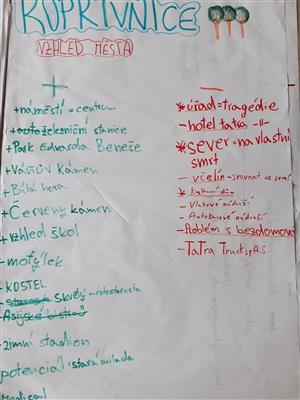 KOPŘIVNICE
VZHLED MĚSTA
+
+náměstí = centrum
+železniční stanice
+Park Edvarda Beneše
+Váňův kámen
+Bílá hora
+Červený kámen
+vzhled škol
- motýlek
- KOSTEL
- Skvělý místostarosta
- Asijské bistro
- zimní stadion
potenciál: stará milada
Medical
-
*úřad=tragédie
- hotel tatra -||-
*sever = na vlastní
smrt
- včelín - srovnat se zemí
* kulturní dům
- Vlakové nádraží
- Autobusové nádraží
- Problém s bezdomovci
- TaTra Trucks, A.S